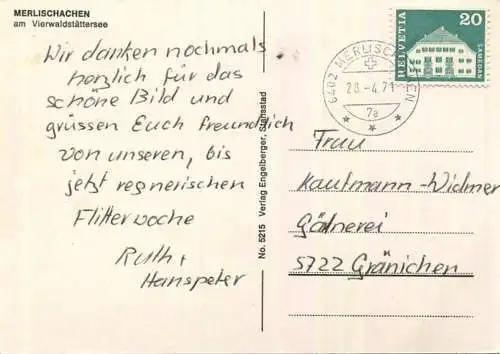 MERLISCHACHEN
am Vierwaldstättersee
Wir danken nochmals
herzlich für das
schöne Bild und
grüssen Euch freundlich
von unseren, bis
jetzt regnerischen
Flitterwoche
Ruth +
Hanspeter
No. 5215 Verlag Engelberger, Stansstad
6402 MERLISCHACHEN
28.-4.71
7a
HELVETIA
20
SAMEDAN
Frau
Kaufmann-Widmer
Gätnerei
5722 Gränichen